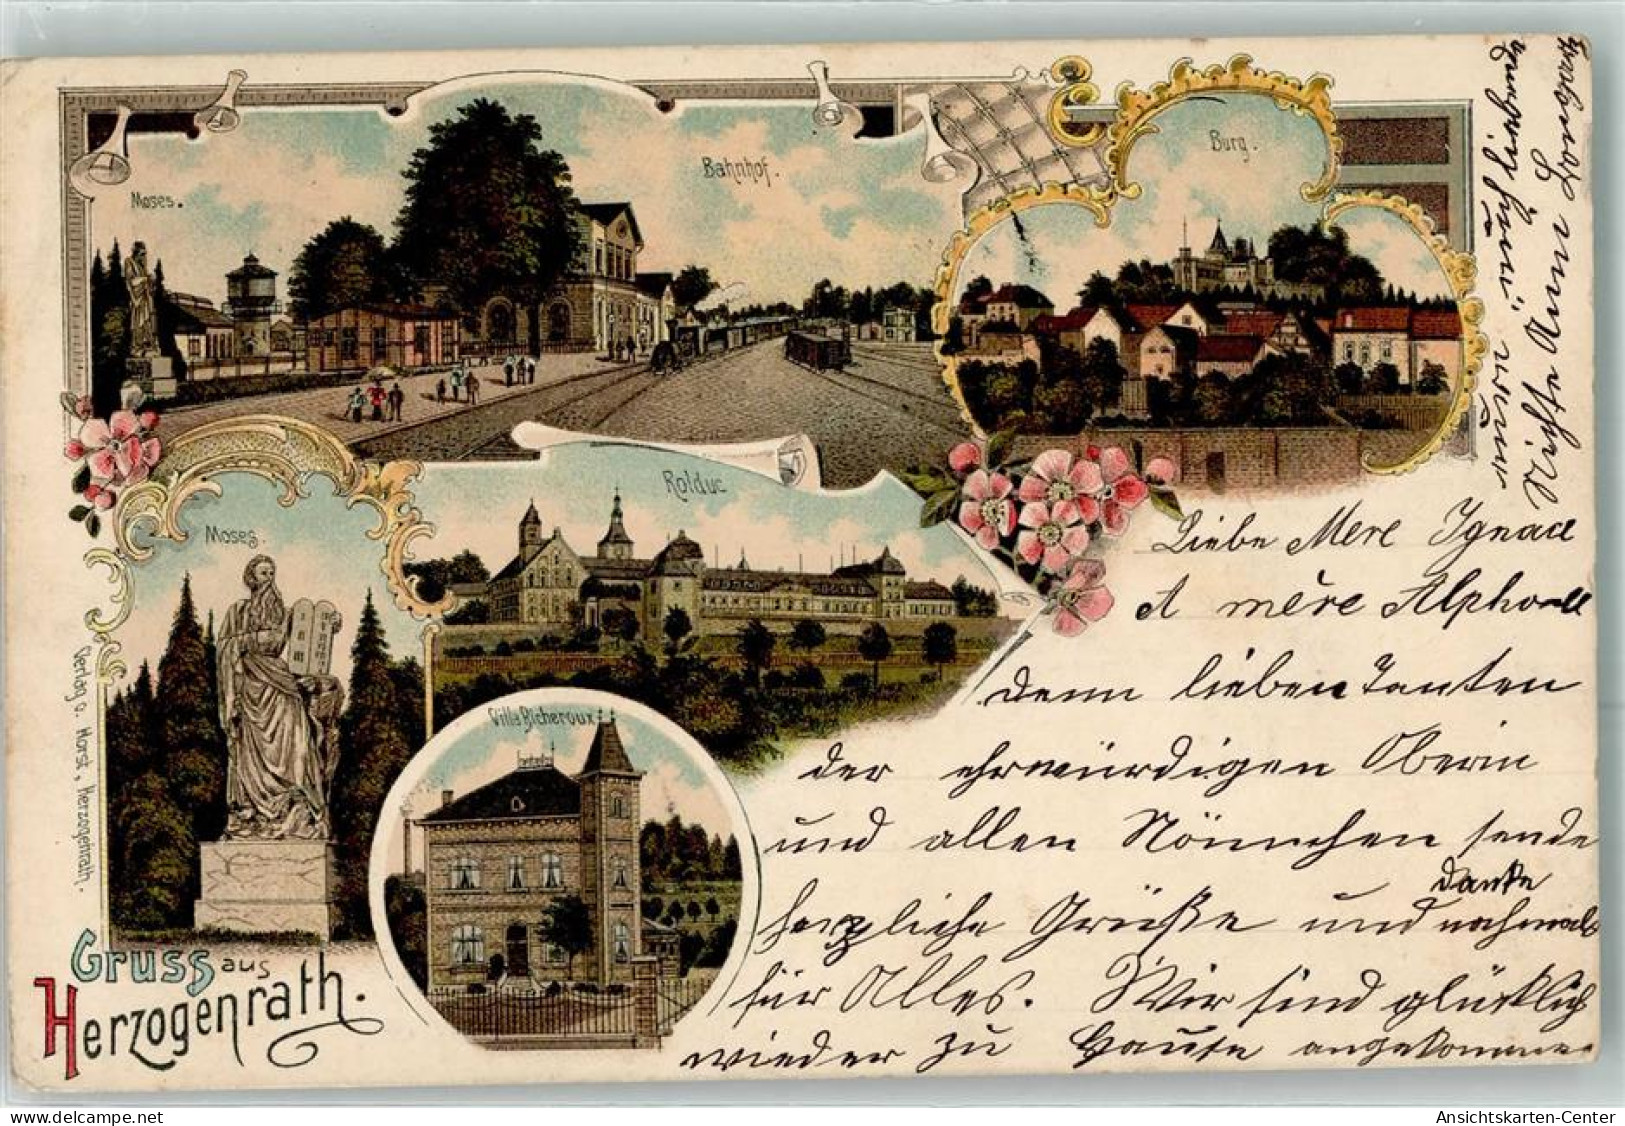 Moses.
Bahnhof.
Burg.
Moses.
Rolduc
Villa Bicheroux
Verlag v. Horst, Herzogenrath.
Gruss aus
Herzogenrath.
Liebe Mere Ignace
A mère Alphonse
denn lieben Tanten
der ehrwürdigen Oberin
und allen Nönnchen sende
herzliche Grüße und
danke
nochmals
für Alles. Wir sind glücklich
wieder zu Hause angekommen
Nichte Anni
Ansichtskarten-Center